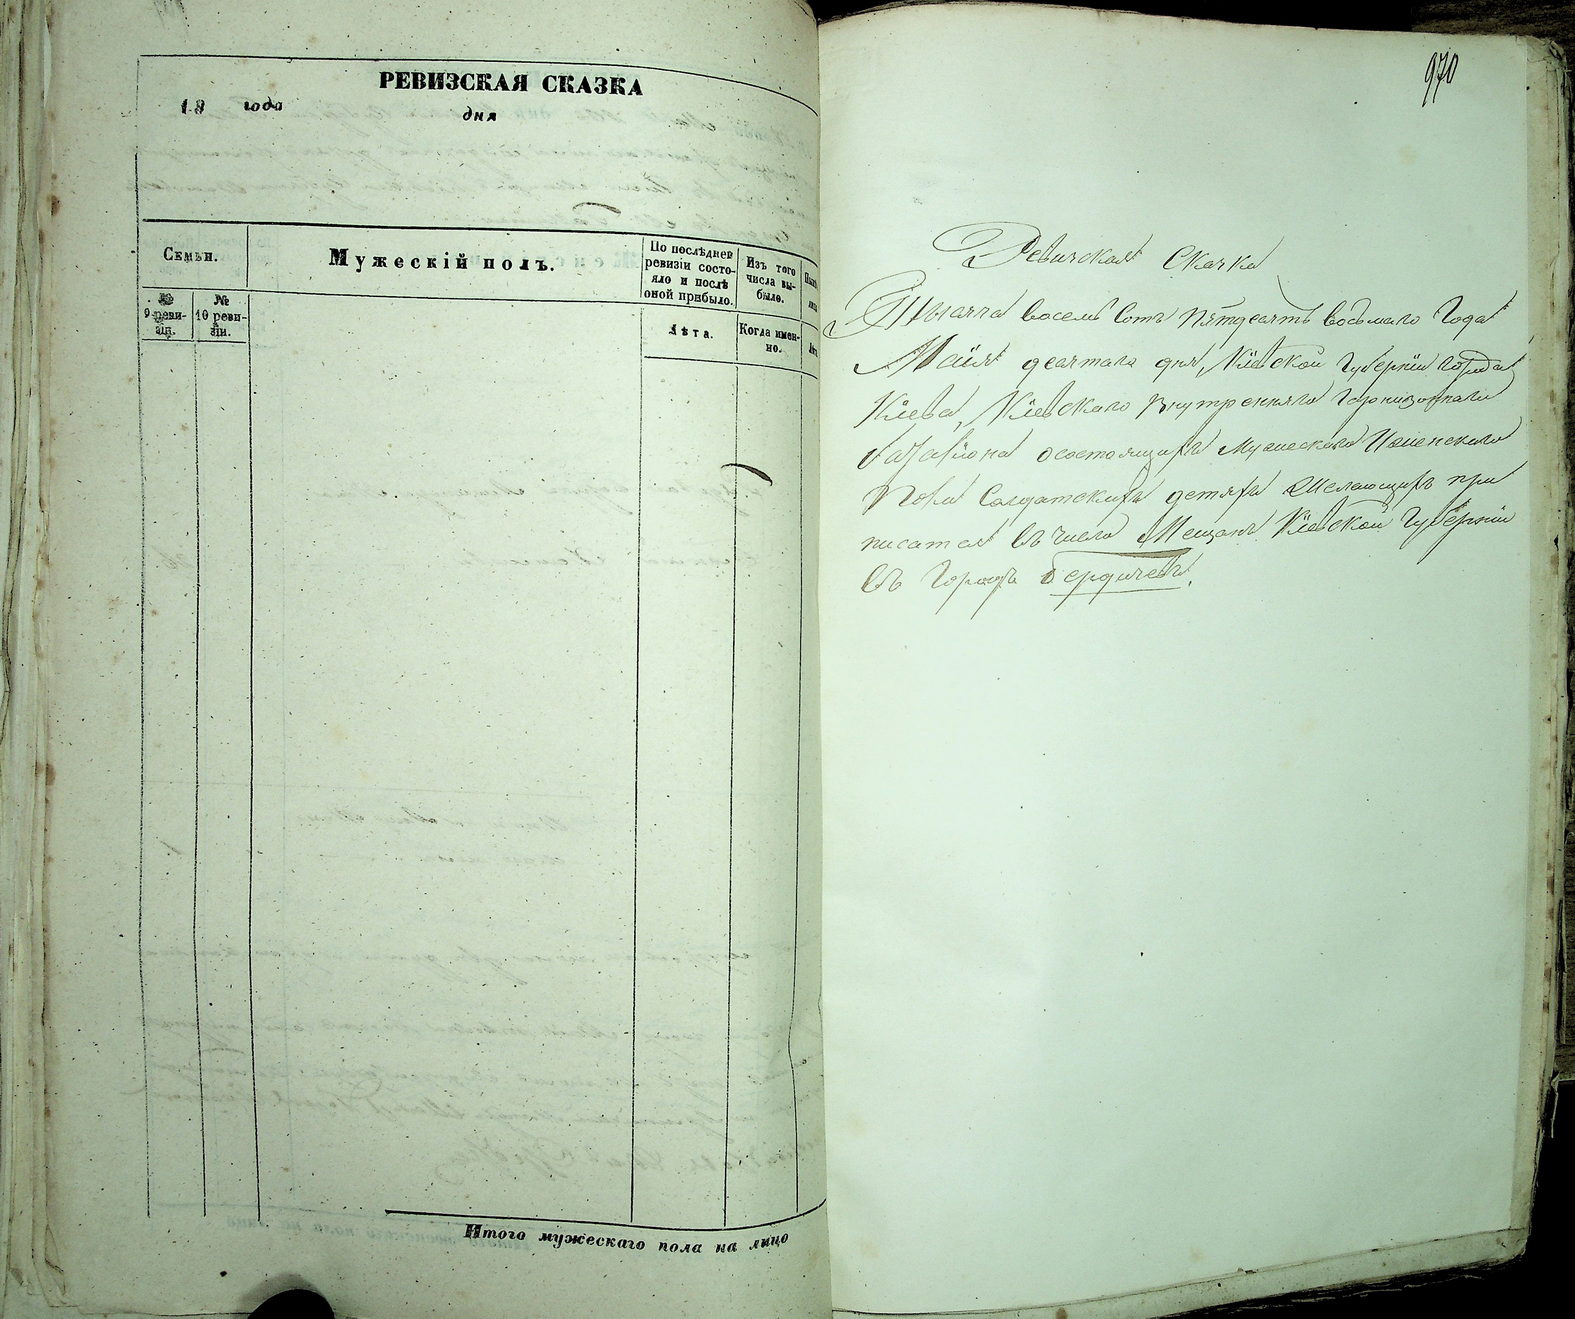 РЕВИЗСКАЯ СКАЗКА
18 года
дня
Семьи.
Мужескій полъ.
По послѣдней ревизіи состо-
яло и послѣ оной прибыло.
Изъ того числа вы-
было.
№ 9 реви-
зіи.
№ 10 реви-
зіи.
Лѣта.
Когда имен-
но.
Итого мужескаго пола на лицо
970
Ревизская Сказка
Тысяча восемь сотъ пятдесятъ восьмаго Года
Маія десятаго дня, Кіевской Губерніи города
Кіева, Кіевскаго Внутренняго Гарнизоннаго
баталіона о состоящихъ Мужескаго И женскаго
Пола Солдатскихъ детяхъ Желающихъ при
писатся въ число Мещанъ Кіевской Губерніи
въ Городъ Бердичевъ.